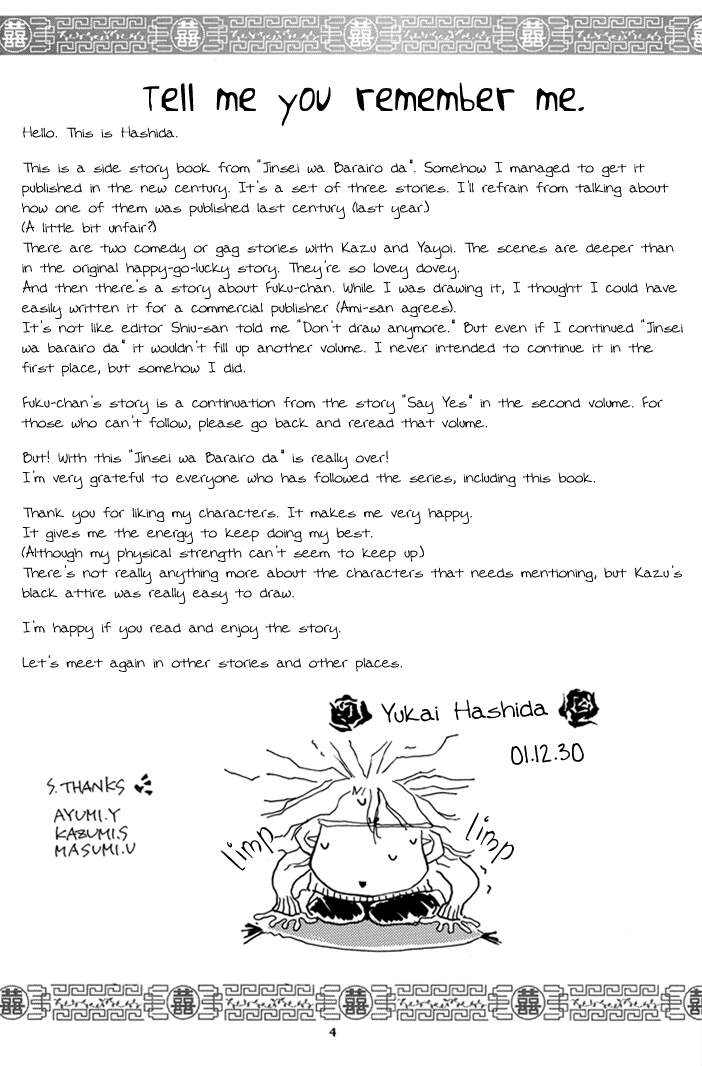 Tell me you remember me.
Hello. This is Hashida.
This is a side story book from "Jinsei wa Barairo da". Somehow I managed to get it
published in the new century. It's a set of three stories. I'll refrain from talking about
how one of them was published last century (last year)
(A little bit unfair?)
There are two comedy or gag stories with Kazu and Yayoi. The scenes are deeper than
in the original happy-go-lucky story. They're so lovey dovey.
And then there's a story about Fuku-chan. While I was drawing it, I thought I could have
easily written it for a commercial publisher (Ami-san agrees).
It's not like editor Shiu-san told me "Don't draw anymore." But even if I continued "Jinsei
wa barairo da" it wouldn't fill up another volume. I never intended to continue it in the
first place, but somehow I did.
Fuku-chan's story is a continuation from the story "Say Yes" in the second volume. For
those who can't follow, please go back and reread that volume.
But! With this "Jinsei wa Barairo da" is really over!
I'm very grateful to everyone who has followed the series, including this book.
Thank you for liking my characters. It makes me very happy.
It gives me the energy to keep doing my best.
(Although my physical strength can't seem to keep up)
There's not really anything more about the characters that needs mentioning, but Kazu's
black attire was really easy to draw.
I'm happy if you read and enjoy the story.
Let's meet again in other stories and other places.
Yukai Hashida
01.12.30
S.THANKS
AYUMI.Y
KAZUMI.S
MASUMI.U
limp
limp
4